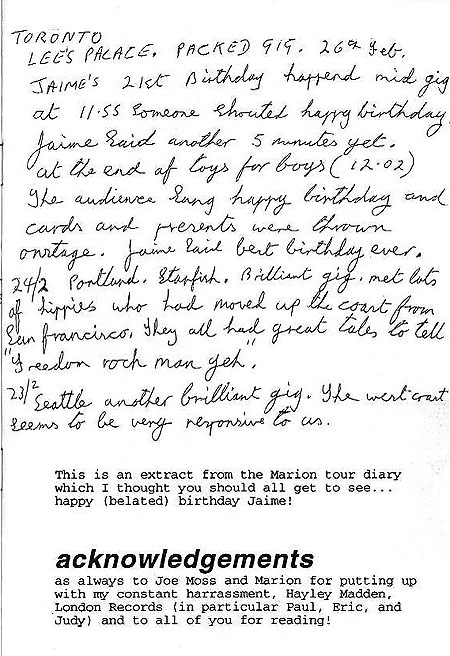 TORONTO
LEE'S PALACE. PACKED GIG. 26th Feb.
JAIME'S 21st Birthday happend mid gig
at 11:55 Someone shouted happy birthday
Jaime Said another 5 minutes yet.
at the end of toys for boys (12.02)
The audience Sang happy birthday and
cards and presents were thrown
onstage. Jaime Said best birthday ever.
24/2 Portland. Starfish. Brilliant gig. met lots
of hippies who had moved up the coast from
San Francisco. They all had great tales to tell
"Freedom rock man yeh".
23/2 Seattle another brilliant gig. The west coast
seems to be very responsive to us.
This is an extract from the Marion tour diary
which I thought you should all get to see...
happy (belated) birthday Jaime!
acknowledgements
as always to Joe Moss and Marion for putting up
with my constant harrassment, Hayley Madden,
London Records (in particular Paul, Eric, and
Judy) and to all of you for reading!